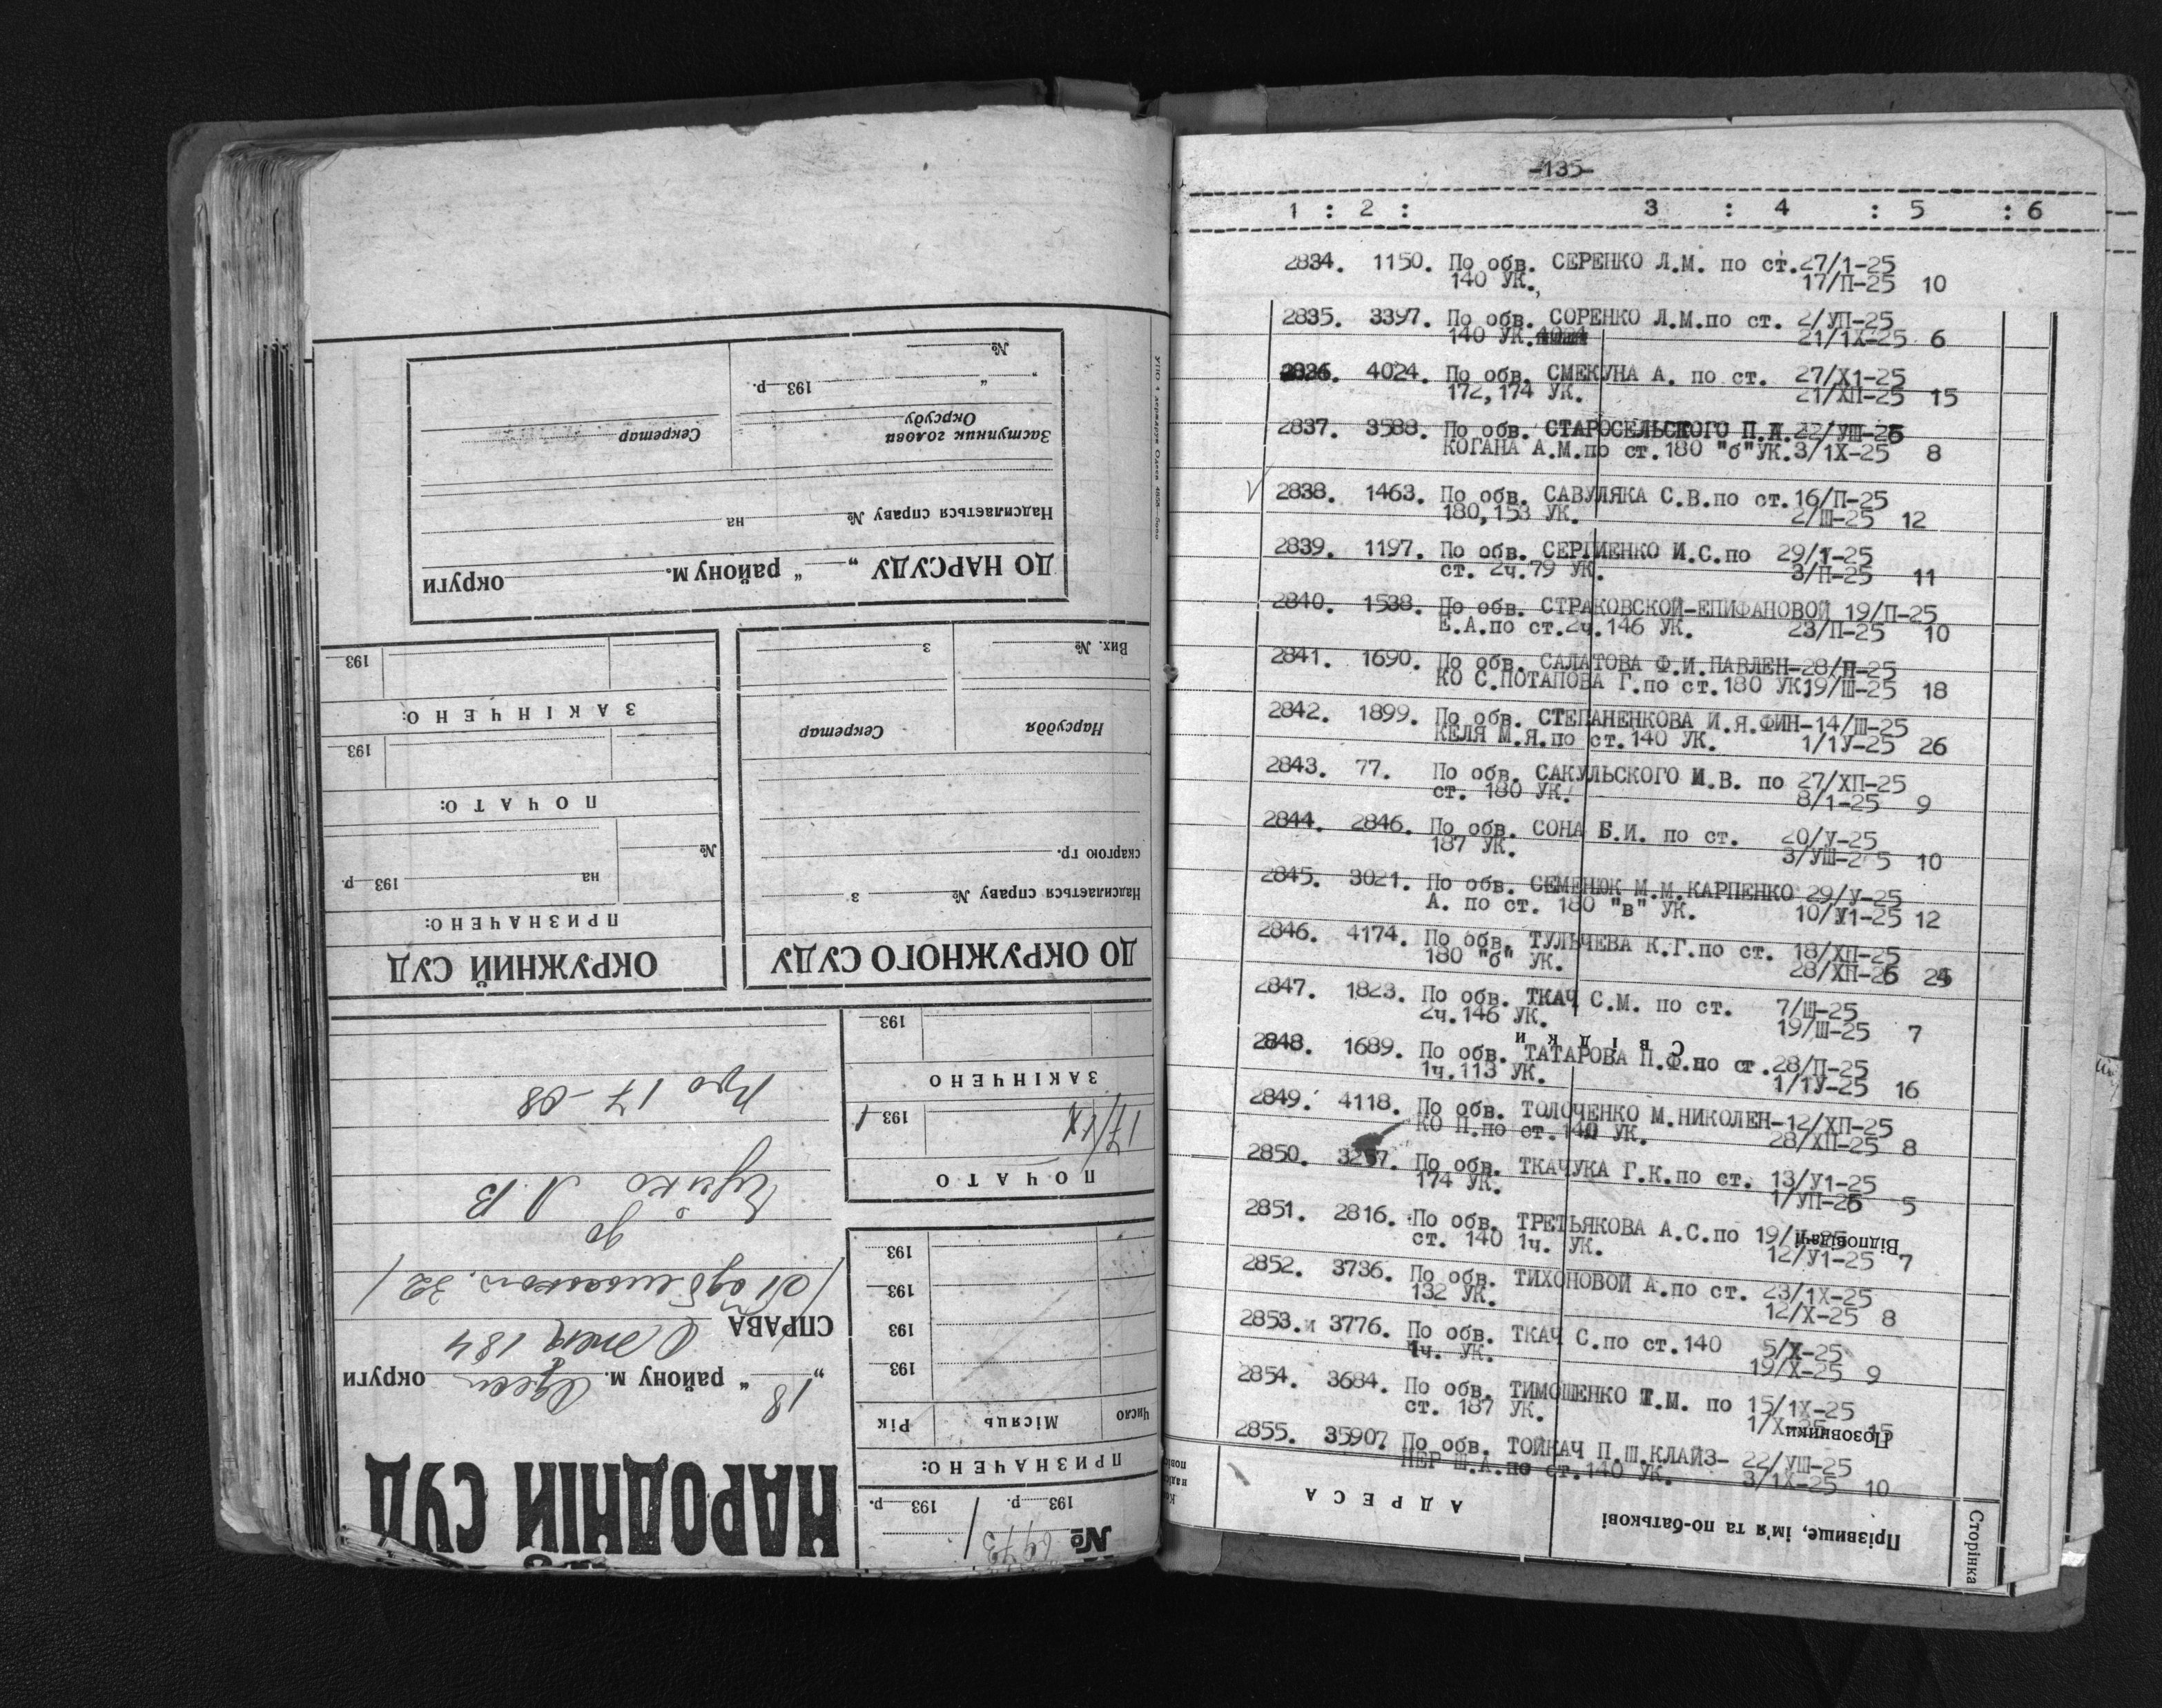 НАРОДНІЙ СУД
18 " району м. округи
СПРАВА
Про 17-08
№ 6973
193 р. 193 р.
ПРИЗНАЧЕНО:
Число Місяць Рік
193
193
193
193
ПОЧАТО
17/IX 193 1
ЗАКІНЧЕНО
193
ДО ОКРУЖНОГО СУДУ
Надсилається справу № з
скаргою гр.
Нарсуддя Секретар
Вих. № з
ОКРУЖНИЙ СУД
ПРИЗНАЧЕНО:
на 193 р.
№
ПОЧАТО:
193
ЗАКІНЧЕНО:
193
ДО НАРСУДУ „ " району м. округи
Надсилається справу № на
Заступник голови
Окрсуду
Секретар
" " 193 р.
№
-135-
1 : 2 : 3 : 4 : 5 : 6
2834. 1150. По обв. СЕРЕНКО Л.М. по ст. 27/1-25
140 УК., 17/П-25 10
2835. 3397. По обв. СОРЕНКО Л.М.по ст. 2/УП-25
140 УК. 21/1Х-25 6
2836. 4024. По обв. СМЕКУНА А. по ст. 27/Х1-25
172,174 УК. 21/ХП-25 15
2837. 3588. По обв. СТАРОСЕЛЬСКОГО П.А. 22/УШ-25
КОГАНА А.М.по ст.180 "б"УК. 3/1Х-25 8
2838. 1463. По обв. САВУЛЯКА С.В.по ст. 16/П-25
180,153 УК. 2/Ш-25 12
2839. 1197. По обв. СЕРГИЕНКО И.С.по 29/1-25
ст. 2ч.79 УК. 3/П-25 11
2840. 1538. По обв. СТРАКОВСКОЙ-ЕПИФАНОВОЙ 19/П-25
Е.А.по ст.2ч.146 УК. 23/П-25 10
2841. 1690. По обв. САЛАТОВА Ф.И.ПАВЛЕН- 28/П-25
КО С.ПОТАПОВА Г.по ст.180 УК. 19/Ш-25 18
2842. 1899. По обв. СТЕПАНЕНКОВА И.Я.ФИН- 14/Ш-25
КЕЛЯ М.Я.по ст.140 УК. 1/1У-25 26
2843. 77. По обв. САКУЛЬСКОГО И.В. по 27/ХП-25
ст. 180 УК. 8/1-25 9
2844. 2846. По обв. СОНА Б.И. по ст. 20/У-25
187 УК. 3/УШ-25 10
2845. 3021. По обв. СЕМЕНЮК М.М.КАРПЕНКО 29/У-25
А. по ст. 180 "в" УК. 10/У1-25 12
2846. 4174. По обв. ТУЛЬЧЕВА К.Г.по ст. 18/ХП-25
180 "б" УК. 28/ХП-26 24
2847. 1823. По обв. ТКАЧ С.М. по ст. 7/Ш-25
2ч.146 УК. 19/Ш-25 7
Свідки
2848. 1689. По обв. ТАТАРОВА П.Ф.по ст. 28/П-25
1ч.113 УК. 1/1У-25 16
2849. 4118. По обв. ТОЛОЧЕНКО М.НИКОЛЕН- 12/ХП-25
КО П.по ст.140 УК. 28/ХП-25 8
2850. 3257. По обв. ТКАЧУКА Г.К.по ст. 13/У1-25
174 УК. 1/УП-25 5
2851. 2816. По обв. ТРЕТЬЯКОВА А.С.по 19/
ст. 140 1ч. УК. 12/У1-25 7
Відповідачі
2852. 3736. По обв. ТИХОНОВОЙ А.по ст. 23/1Х-25
132 УК. 12/Х-25 8
2853.и 3776. По обв. ТКАЧ С.по ст.140 5/Х-25
1ч. УК. 19/Х-25 9
2854. 3684. По обв. ТИМОШЕНКО Т.М. по 15/1Х-25
ст. 187 УК. 1/Х-25 15
Позовники
2855. 35907 По обв. ТОЙКАЧ П.Ш.КЛАЙЗ- 22/УШ-25
НЕР Ш.А.по ст.140 УК. 3/1Х-25 10
АДРЕСА
Прізвище, ім'я та по-батькові
Сторінка